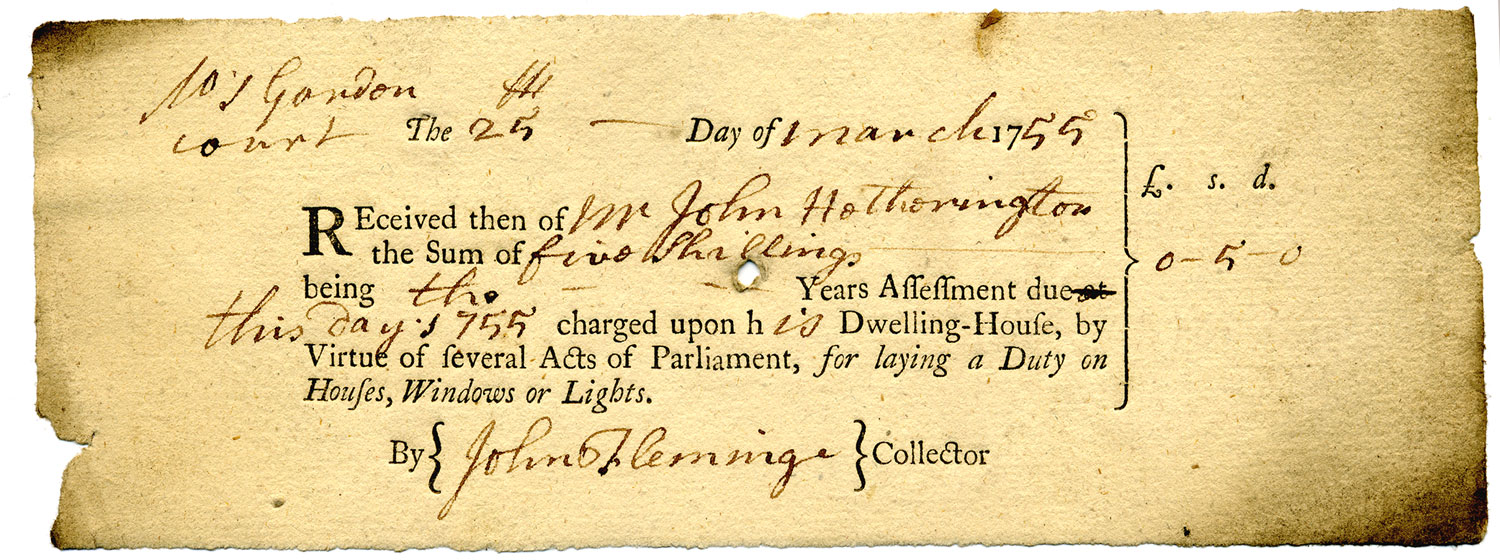 Gordon th
court The 25 — Day of march 1755
£. s. d.
REceived then of Mr John Hetherington
the Sum of five Shillings 0-5-0
being the — - Years Aſſeſſment due at
this day 1755 charged upon h is Dwelling-Houſe, by
Virtue of ſeveral Acts of Parliament, for laying a Duty on
Houſes, Windows or Lights.
By { John Fleminge } Collector